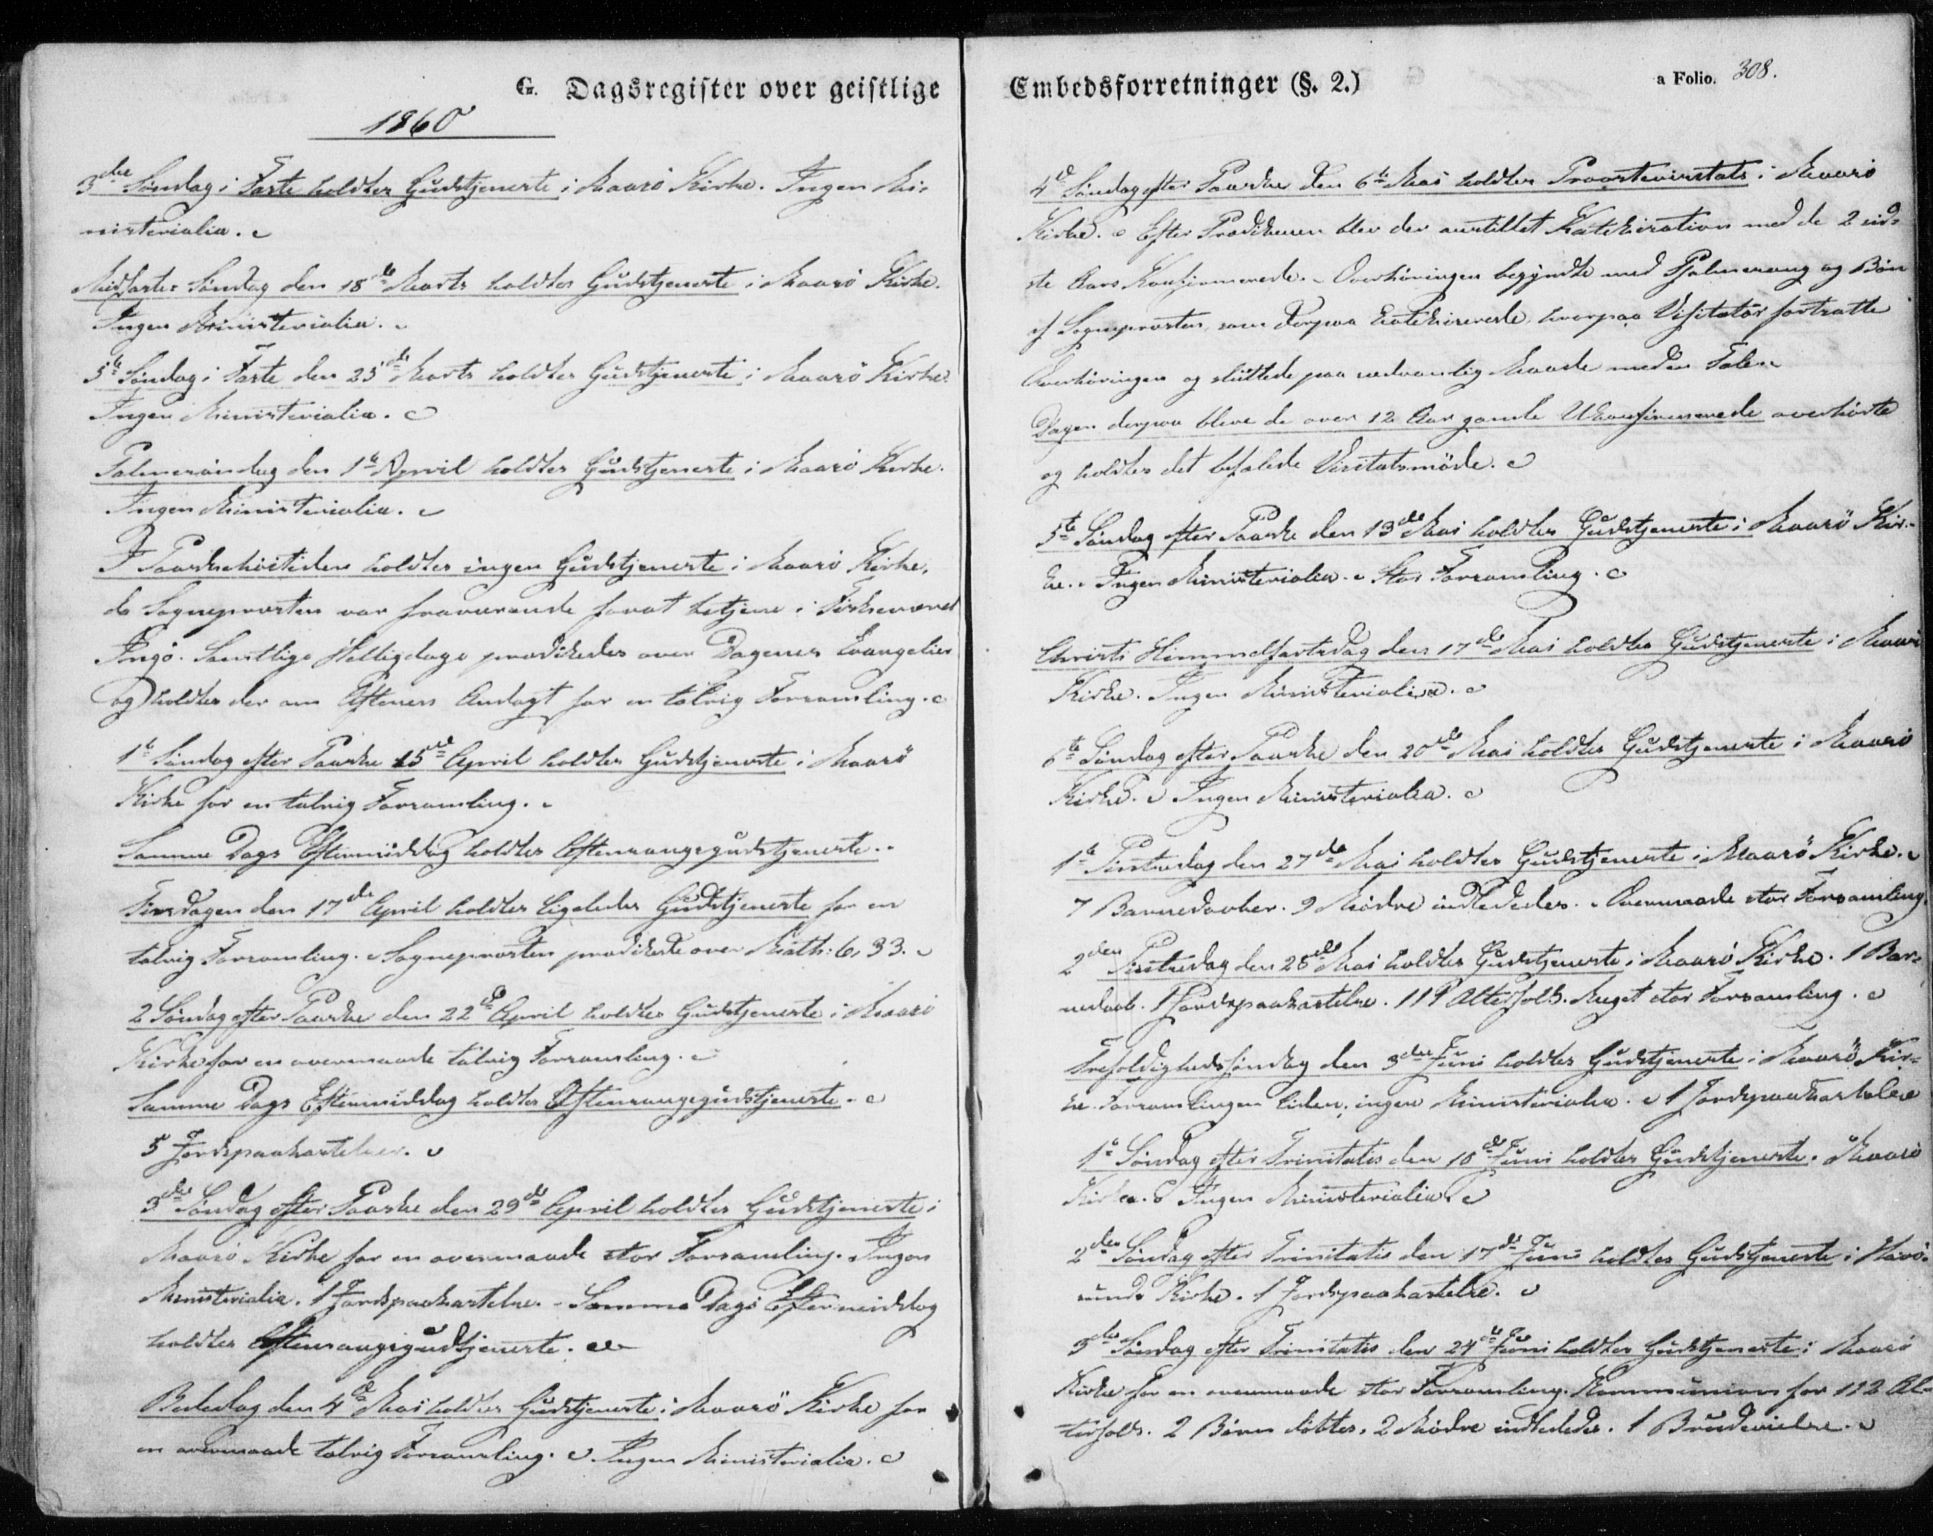 G. Dagsregister over geistlige
1860
3die Søndag i Faste holdtes Gudstjeneste i Maasø Kirke. Ingen Mi-
nisterialia.
Midfaste Søndag den 18de Marts holdtes Gudstjeneste i Maasø Kirke.
Ingen Ministerialia.
5te Søndag i Faste den 25de Marts holdtes Gudstjeneste i Maasø Kirke.
Ingen Ministerialia.
Palmesøndag den 1te April holdtes Gudstjeneste i Maasø Kirke.
Ingen Ministerialia.
I Paaskehøitiden holdtes ingen Gudstjeneste i Maasø Kirke,
da Sognepresten var fraværende for at betjene i Fiskeværet
Ingø. Samtlige Helligdage prædikedes over Dagenes Evangelier
og holdtes der om Aftenen Andagt for en talrig Forsamling.
1te Søndag efter Paaske 15de April holdtes Gudstjeneste i Maasø
Kirke for en talrig Forsamling.
Samme Dags Eftermiddag holdtes Aftensangsgudstjeneste.
Tirsdagen den 17de April holdtes ligeledes Gudstjeneste for en
talrig Forsamling. Sognepresten prædikede over Math: 6, 33.
2 Søndag efter Paaske den 22de April holdtes Gudstjeneste i Maasø
Kirke for en overmaade talrig Forsamling.
Samme Dags Eftermiddag holdtes Aftensangsgudstjeneste.
5 Jordspaakastelser.
3die Søndag efter Paaske den 29de April holdtes Gudstjeneste i
Maasø Kirke for en overmaade stor Forsamling. Ingen
Ministerialia. 1 Jordspaakastelse. - Samme Dags Eftermiddag
holdtes Aftensangsgudstjeneste.
Bededag den 4de Mai holdtes Gudstjeneste i Maasø Kirke for
en overmaade talrig Forsamling. Ingen Ministerialia.
Embedsforretninger (§. 2.)
a Folio. 308.
4de Søndag efter Paaske den 6te Mai holdtes Proostevisitats i Maasø
Kirke. Efter Prædikenen blev der anstillet Katekisation med de 2 sid-
ste Aars Konfirmerede. - Overhøringen begyndte med Psalmesang og Bøn
af Sognepresten, som derpaa katekiserede, hvorpaa Visitator fortsatte
Overhøringen og sluttede paa sædvanlig Maade med en Tale.
Dagen derpaa bleve de over 12 Aar gamle Ukonfirmerede overhørte
og holdtes det befalede Visitatsmøde.
5te Søndag efter Paaske den 13de Mai holdtes Gudstjeneste i Maasø Kir-
ke. Ingen Ministerialia. Stor Forsamling.
Christi Himmelfartsdag den 17de Mai holdtes Gudstjeneste i Maasø
Kirke. Ingen Ministerialia.
6te Søndag efter Paaske den 20de Mai holdtes Gudstjeneste i Maasø
Kirke. Ingen Ministerialia.
1te Pintsedag den 27de Mai holdtes Gudstjeneste i Maasø Kirke.
7 Barnedaaber. 9 Mødre indlededes. Overmaade stor Forsamling.
2den Pintsedag den 28de Mai holdtes Gudstjeneste i Maasø Kirke. 1 Bar-
nedaab. 1 Jordspaakastelse. 119 Alterfolk. Meget stor Forsamling.
Trefoldigheds Søndag den 3die Juni holdtes Gudstjeneste i Maasø Kir-
ke. Forsamlingen liden, ingen Ministerialia. 1 Jordspaakastelse
1te Søndag efter Trinitatis den 10de Juni holdtes Gudstjeneste. Maasø
Kirke. Ingen Ministerialia.
2den Søndag efter Trinitatis den 17de Juni holdtes Gudstjeneste i Havø-
sunds Kirke. 1 Jordspaakastelse.
3die Søndag efter Trinitatis den 24de Juni holdtes Gudstjeneste i Maasø
Kirke for en overmaade stor Forsamling. Kommunion for 112 Al-
terfolk. 2 Børn døbtes. 2 Mødre indlededes. 1 Brudevielse.